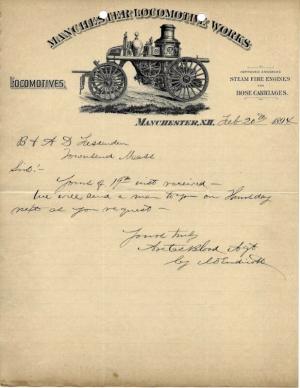 MANCHESTER LOCOMOTIVE WORKS.
LOCOMOTIVES.
IMPROVED AMOSKEAG
STEAM FIRE ENGINES
AND
HOSE CARRIAGES.
MANCHESTER, N.H. Feb 20th 1894
B & A D Fessenden
Townsend Mass
Sirs:—
Yours of 19th inst received —
We will send a man to you on Thursday
next as you request —
Yours truly
Aretas Blood Agt
by